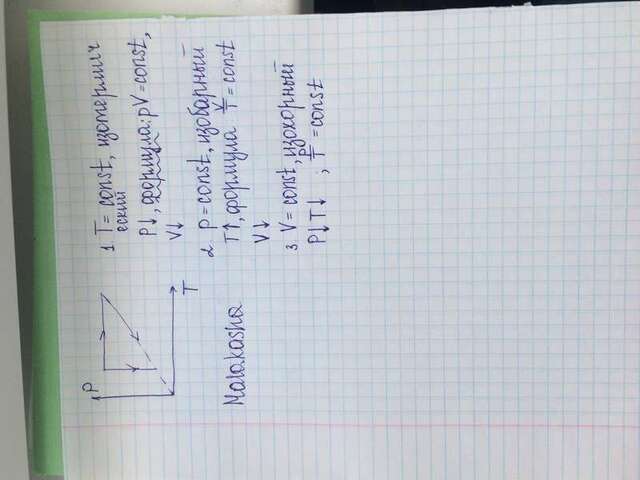 P
T
1 T = const, изотермич
еский
P↓, формула: pV = const,
V↓
2 P = const, изобарный
T↑, формула V/T = const
V↓
3 V = const, изохорный
P↓T↓ ; P/T = const
Malakasha